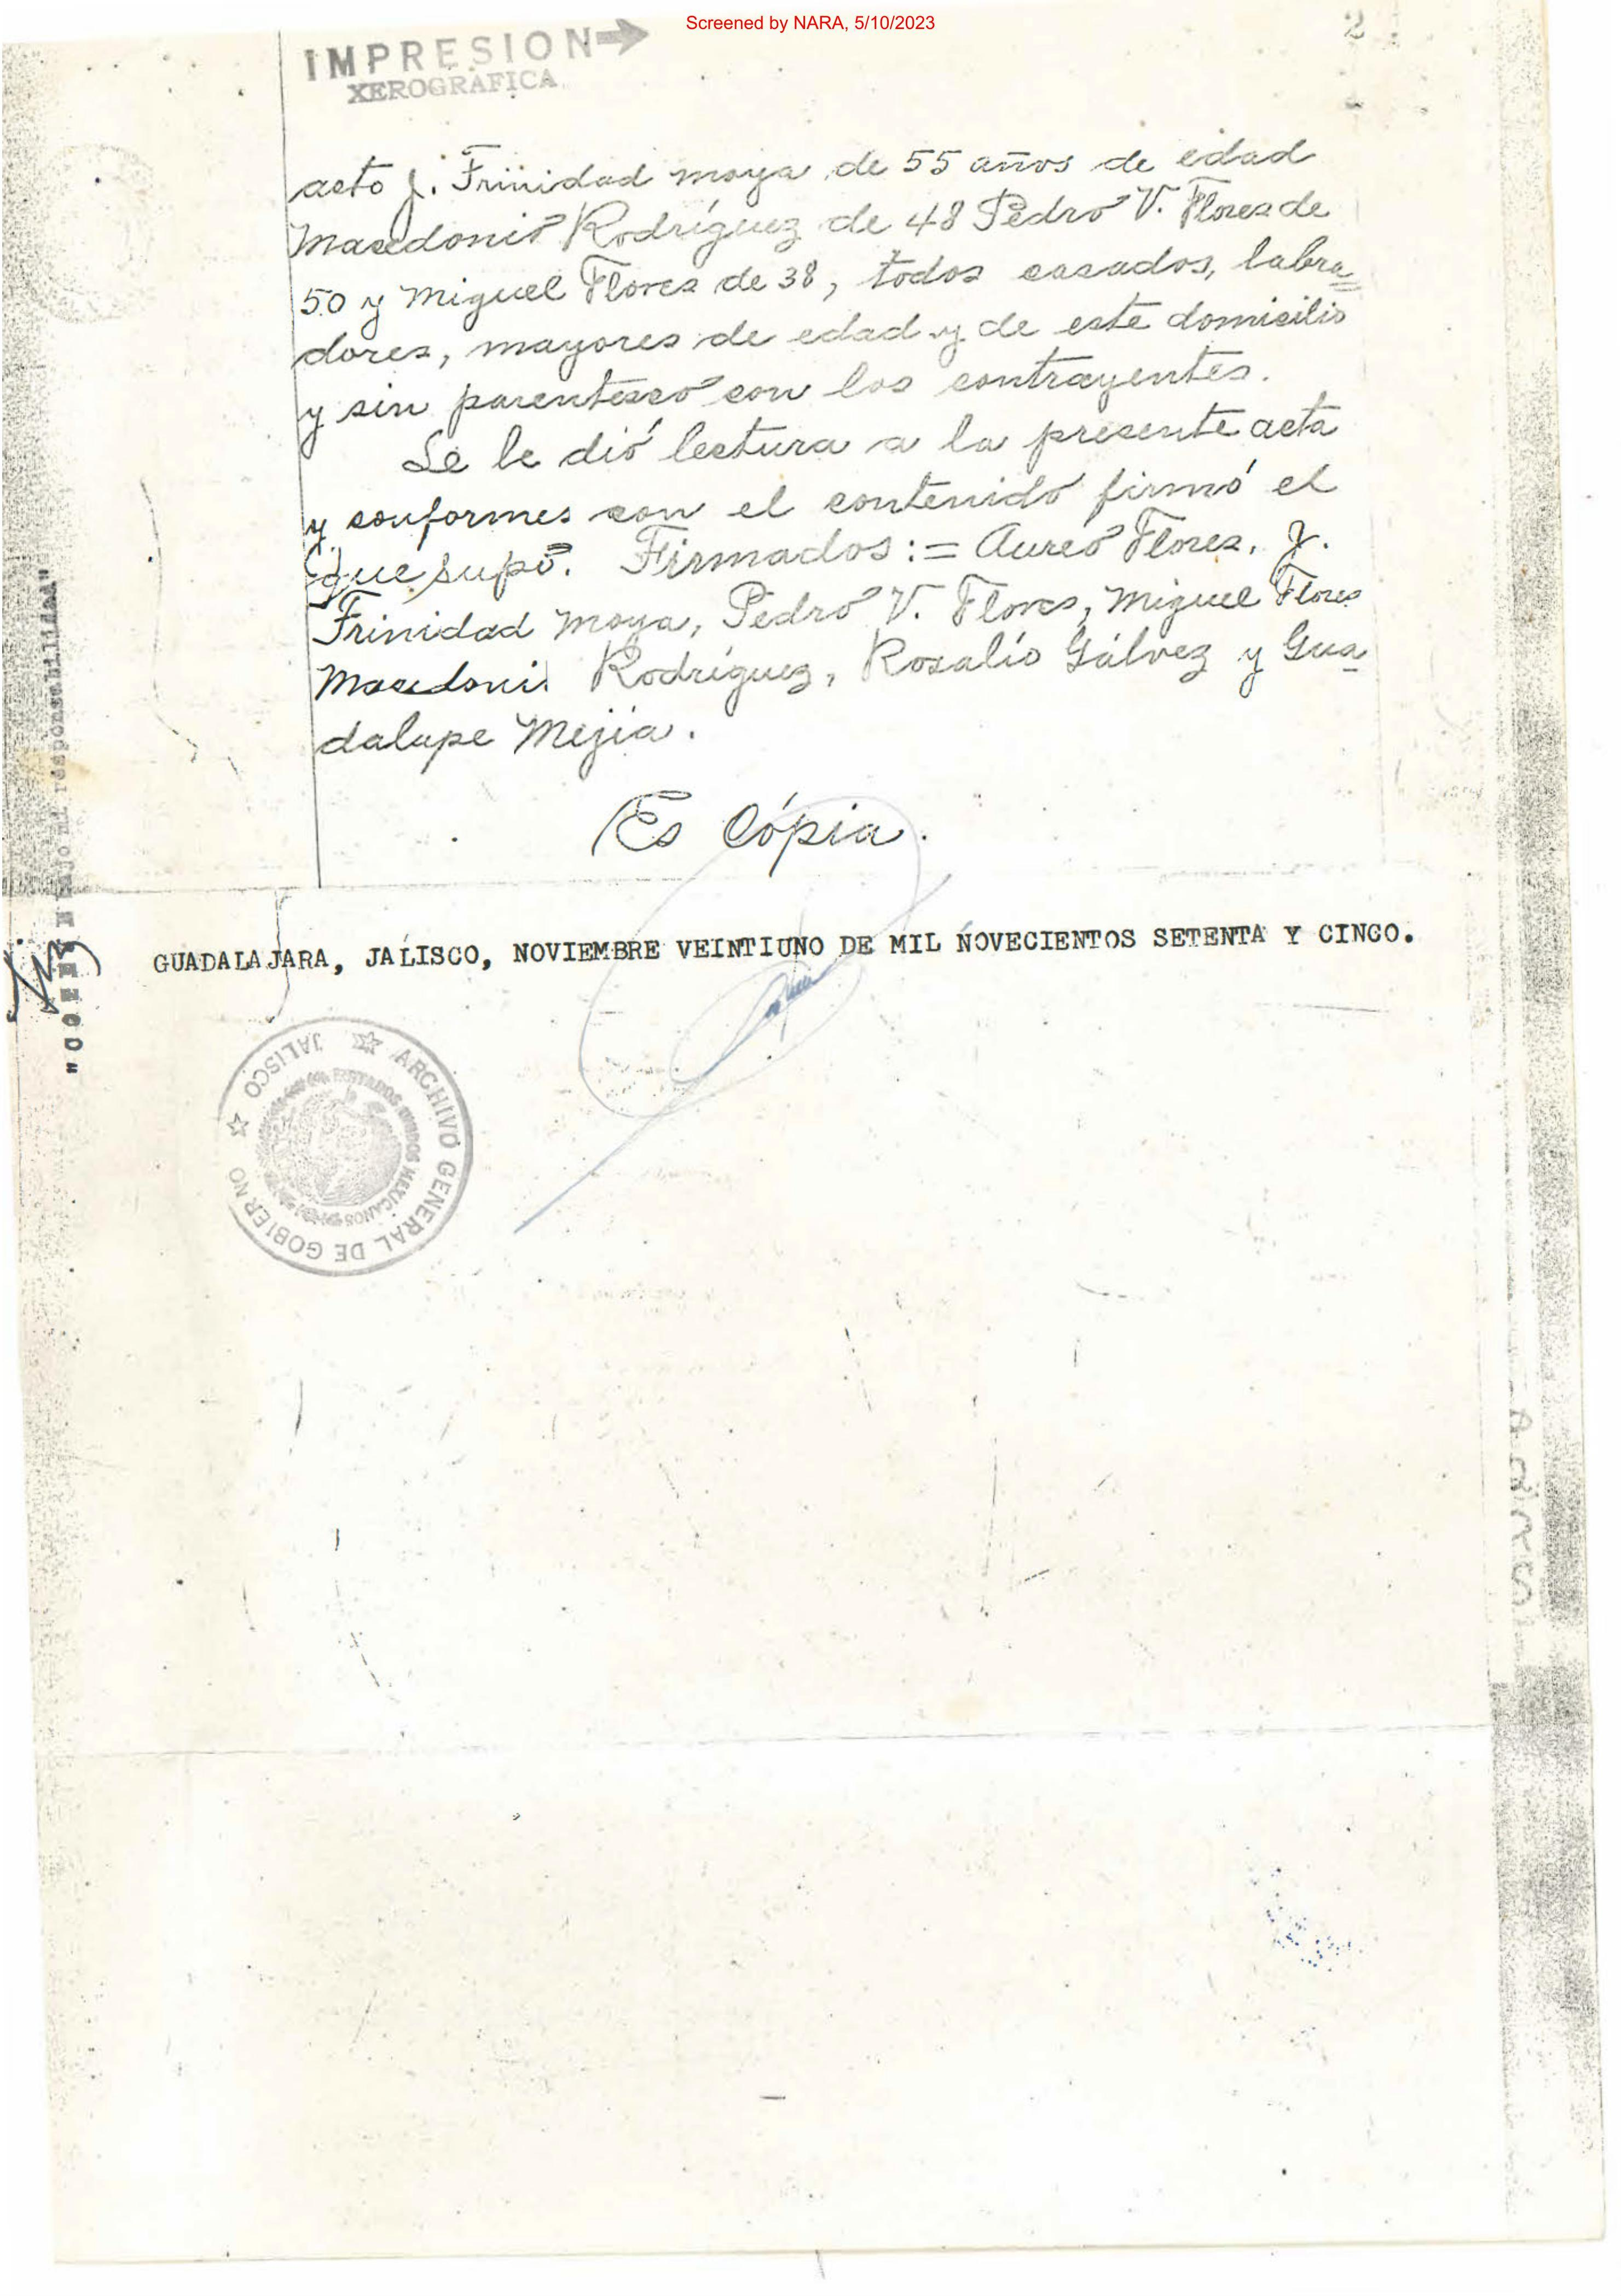 Screened by NARA, 5/10/2023
2
IMPRESION
XEROGRAFICA
acto J. Trinidad moya de 55 años de edad
Macedonio Rodríguez de 48 Pedro V. Flores de
50 y Miguel Flores de 38, todos casados, labra=
dores, mayores de edad y de este domicilio
y sin parentesco con los contrayentes.
Se le dió lectura a la presente acta
y conformes con el contenido firmó el
que supo. Firmados:= Aureo Flores, J.
Trinidad Moya, Pedro V. Flores, Miguel Flores
Macedoni Rodríguez, Rosalío Gálvez y Gua-
dalupe Mejia.
Es Cópia.
GUADALAJARA, JALISCO, NOVIEMBRE VEINTIUNO DE MIL NOVECIENTOS SETENTA Y CINCO.
ARCHIVO GENERAL DE GOBIERNO
JALISCO
ESTADOS UNIDOS MEXICANOS
"COTEJO bajo mi responsabilidad"